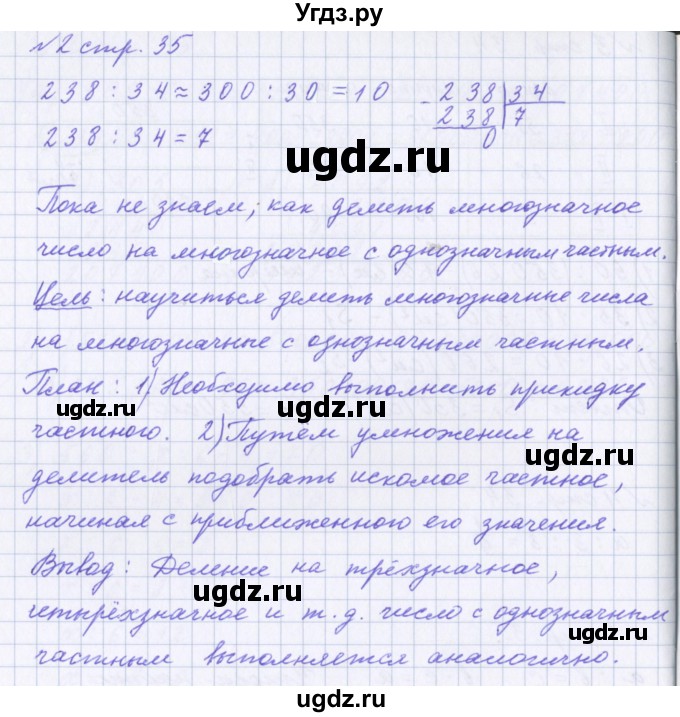 Угдз.ру
№2 стр. 35
238 : 34 ≈ 300 : 30 = 10
238 : 34 = 7
- 238 34
238 7
0
ugdz.ru
Пока не знаем, как делить многозначное
число на многозначное с однозначным частным.
Цель: научиться делить многозначные числа
на многозначные с однозначным частным.
План: 1) Необходимо выполнить прикидку
ugdz.ru ugdz.ru ugdz.ru
частного. 2) Путём умножения на
ugdz.ru
делитель подобрать искомое частное,
начиная с приближенного его значения.
Вывод: Деление на трёхзначное,
ugdz.ru
четырёхзначное и т.д. число с однозначным
ugdz.ru
частным выполняется аналогично.
ugdz.ru